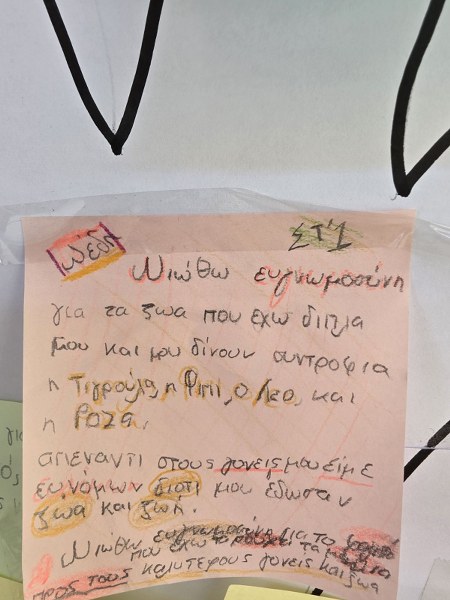 ΣΤ'1
Νιώθω ευγνωμοσύνη
για τα ζωα που εχω διπλα
μου και μου δίνουν συντροφια
η Τιγρούλα, η Φιπι, ο Λεο, και
η Ροζα.
απεναντι στους γονεις μου είμε
ευνόμων διοτι μου έδωσαν
ζωα και ζωη.
Νιώθω ευγνωμοσύνη για το
που έχω τα
προς τους καλυτερους γονεις και ζωα
για